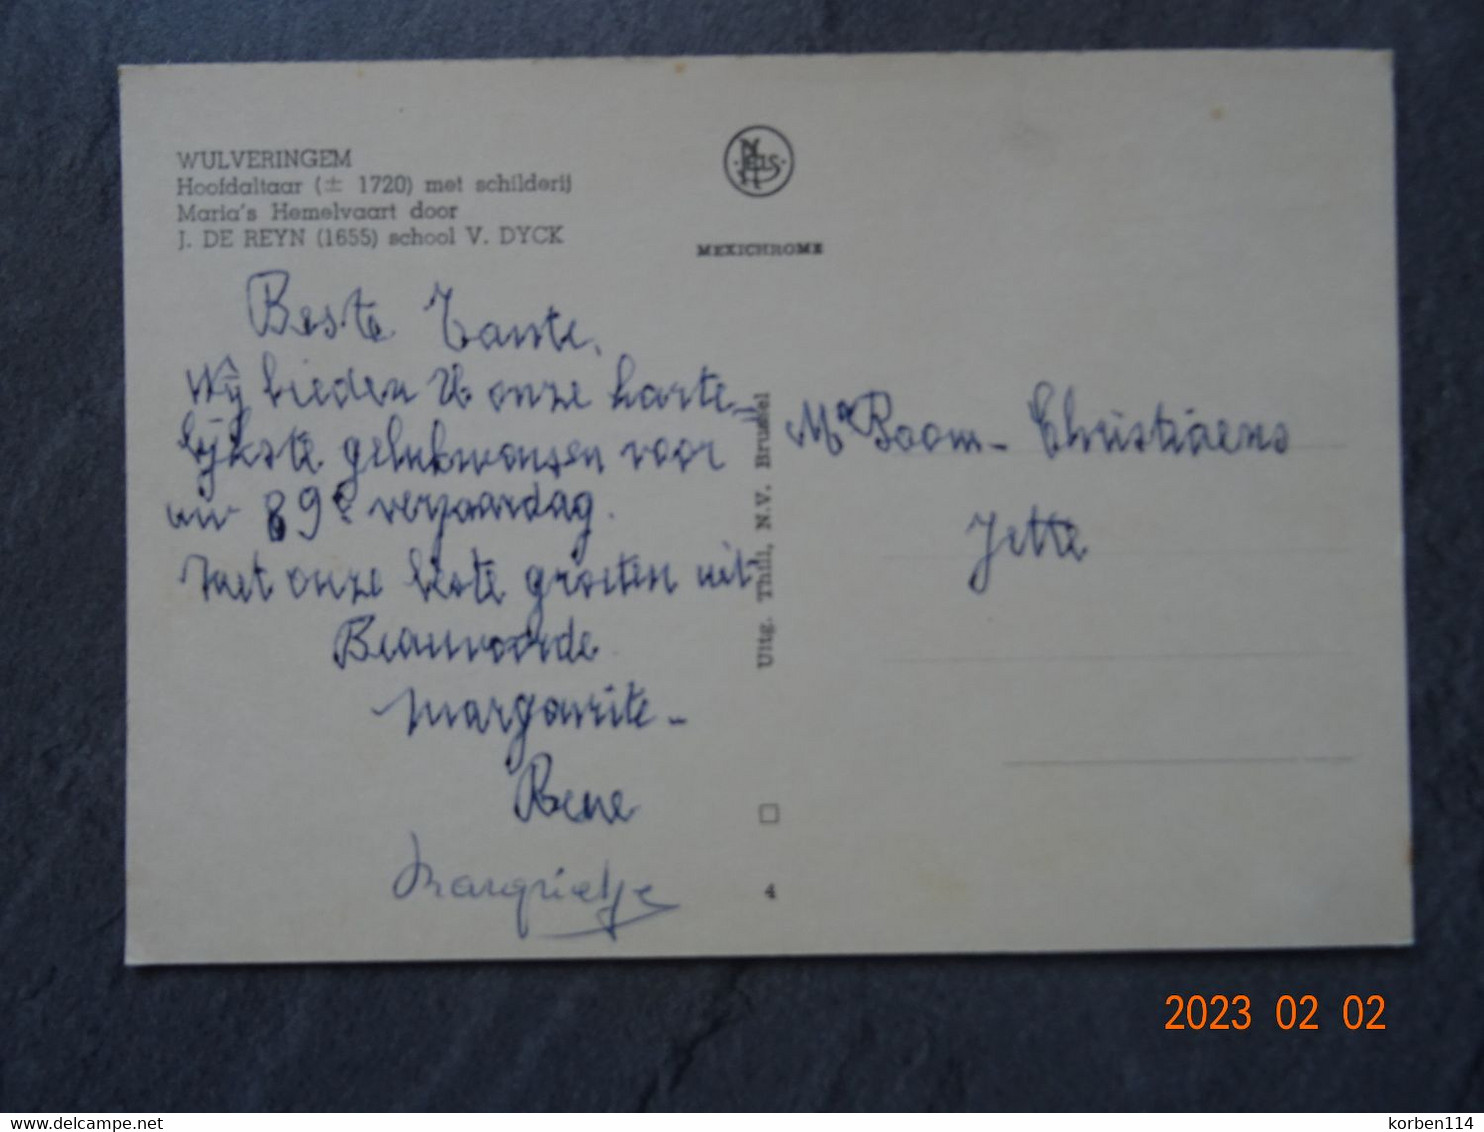 WULVERINGEM
Hoofdaltaar (± 1720) met schilderij
Maria's Hemelvaart door
J. DE REYN (1655) school V. DYCK
NELS
MEXICHROME
Beste Tante,
Wij bieden U onze harte-
lijkste gelukwensen voor
uw 89e verjaardag.
Met onze beste groeten uit
Beauvoorde
Margarite -
Rene
Margrietje
Uitg. Thill, N.V. Brussel
4
Mr Poom - Christiaens
Jette
2023 02 02
delcampe.net
korben114